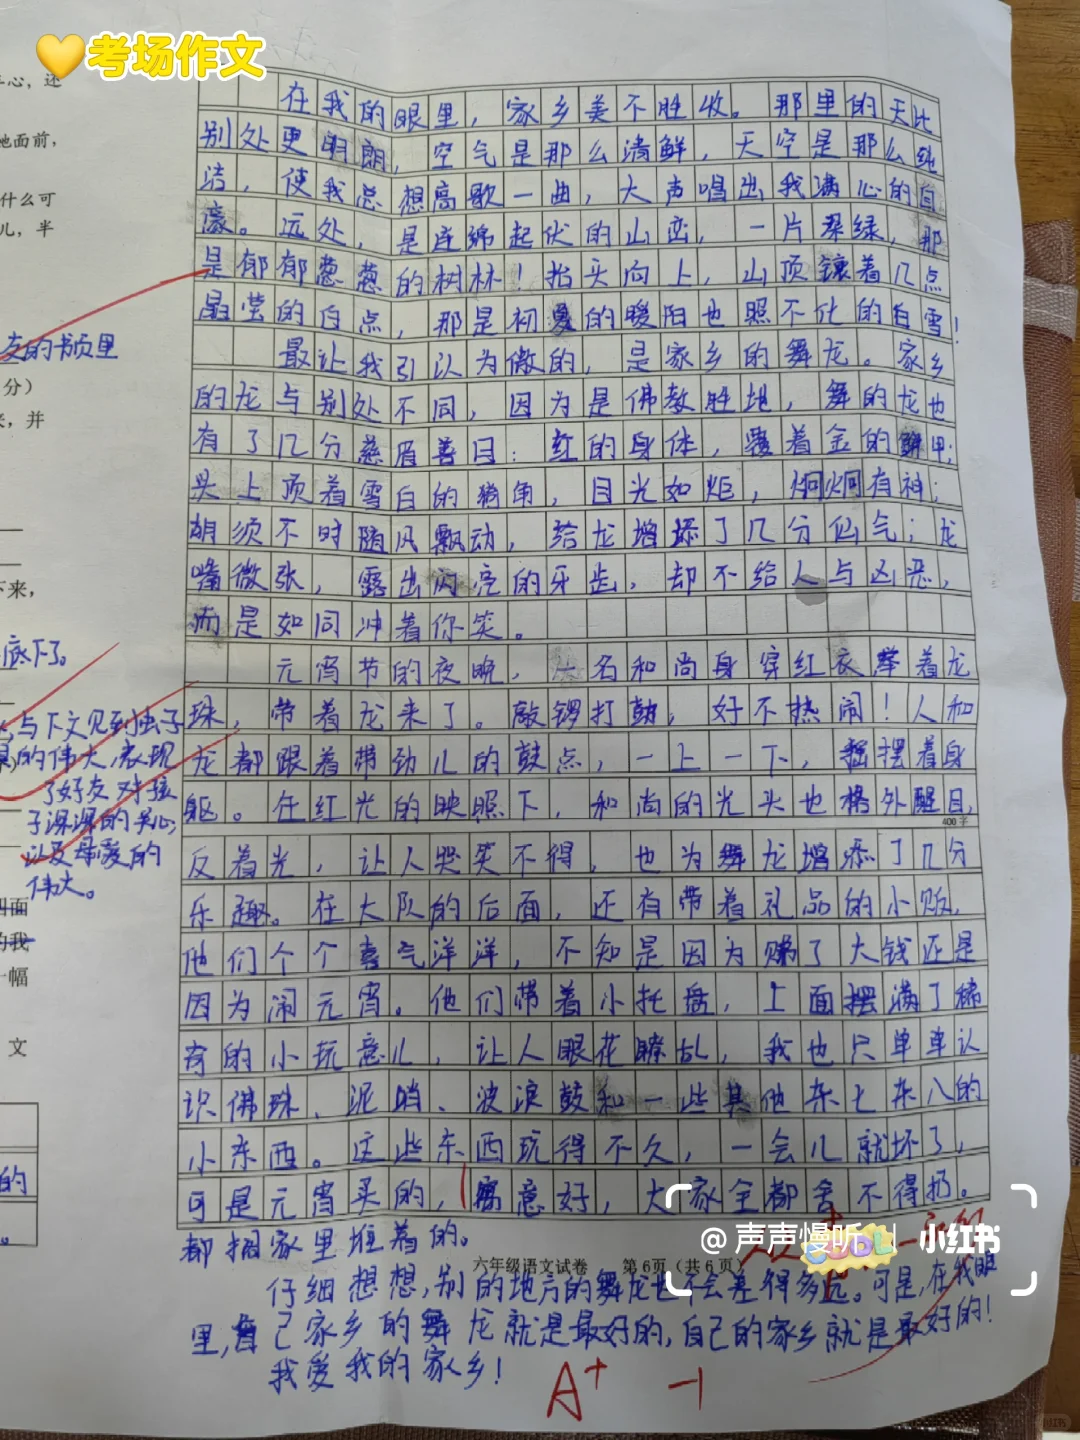 考场作文
在我的眼里，家乡美不胜收。那里的天比
别处更明朗，空气是那么清鲜，天空是那么纯
洁，使我总想高歌一曲，大声唱出我满心的自
豪。远处，是连绵起伏的山峦，一片翠绿，那
是郁郁葱葱的树林！抬头向上，山顶镶着几点
晶莹的白点，那是初夏的暖阳也照不化的白雪！
最让我引以为傲的，是家乡的舞龙。家乡
的龙与别处不同，因为是佛教胜地，舞的龙也
有了几分慈眉善目：红的身体，覆着金的鳞甲；
头上顶着雪白的犄角，目光如炬，炯炯有神；
胡须不时随风飘动，给龙增添了几分仙气；龙
嘴微张，露出闪亮的牙齿，却不给人与凶恶，
而是如同冲着你笑。
元宵节的夜晚，一名和尚身穿红衣举着龙
珠，带着龙来了。敲锣打鼓，好不热闹！人和
龙都跟着带劲儿的鼓点，一上一下，摇摆着身
躯。在红光的映照下，和尚的光头也格外醒目，
400字
反着光，让人哭笑不得，也为舞龙增添了几分
乐趣。在大队的后面，还有带着礼品的小贩，
他们个个喜气洋洋，不知是因为赚了大钱还是
因为闹元宵。他们带着小托盘，上面摆满了稀
奇的小玩意儿，让人眼花瞭乱，我也只单单认
识佛珠、泥哨、波浪鼓和一些其他东七东八的
小东西。这些东西玩得不久，一会儿就坏了，
可是元宵买的，寓意好，大家全都舍不得扔。
都搁家里堆着的。
六年级语文试卷 第6页（共6页）
仔细想想，别的地方的舞龙也不会差得多远。可是，在我眼
里，自己家乡的舞龙就是最好的，自己的家乡就是最好的！
我爱我的家乡！
A+ -1
心，还
她面前，
什么可
儿，半
支的书页里
分）
来，并
下来，
底下了。
与下文见到虫子
的伟大，表现
了好友对孩
子深深的关心，
以及母爱的
伟大。
四面
的我
一幅
文
的
@声声慢听
小红书